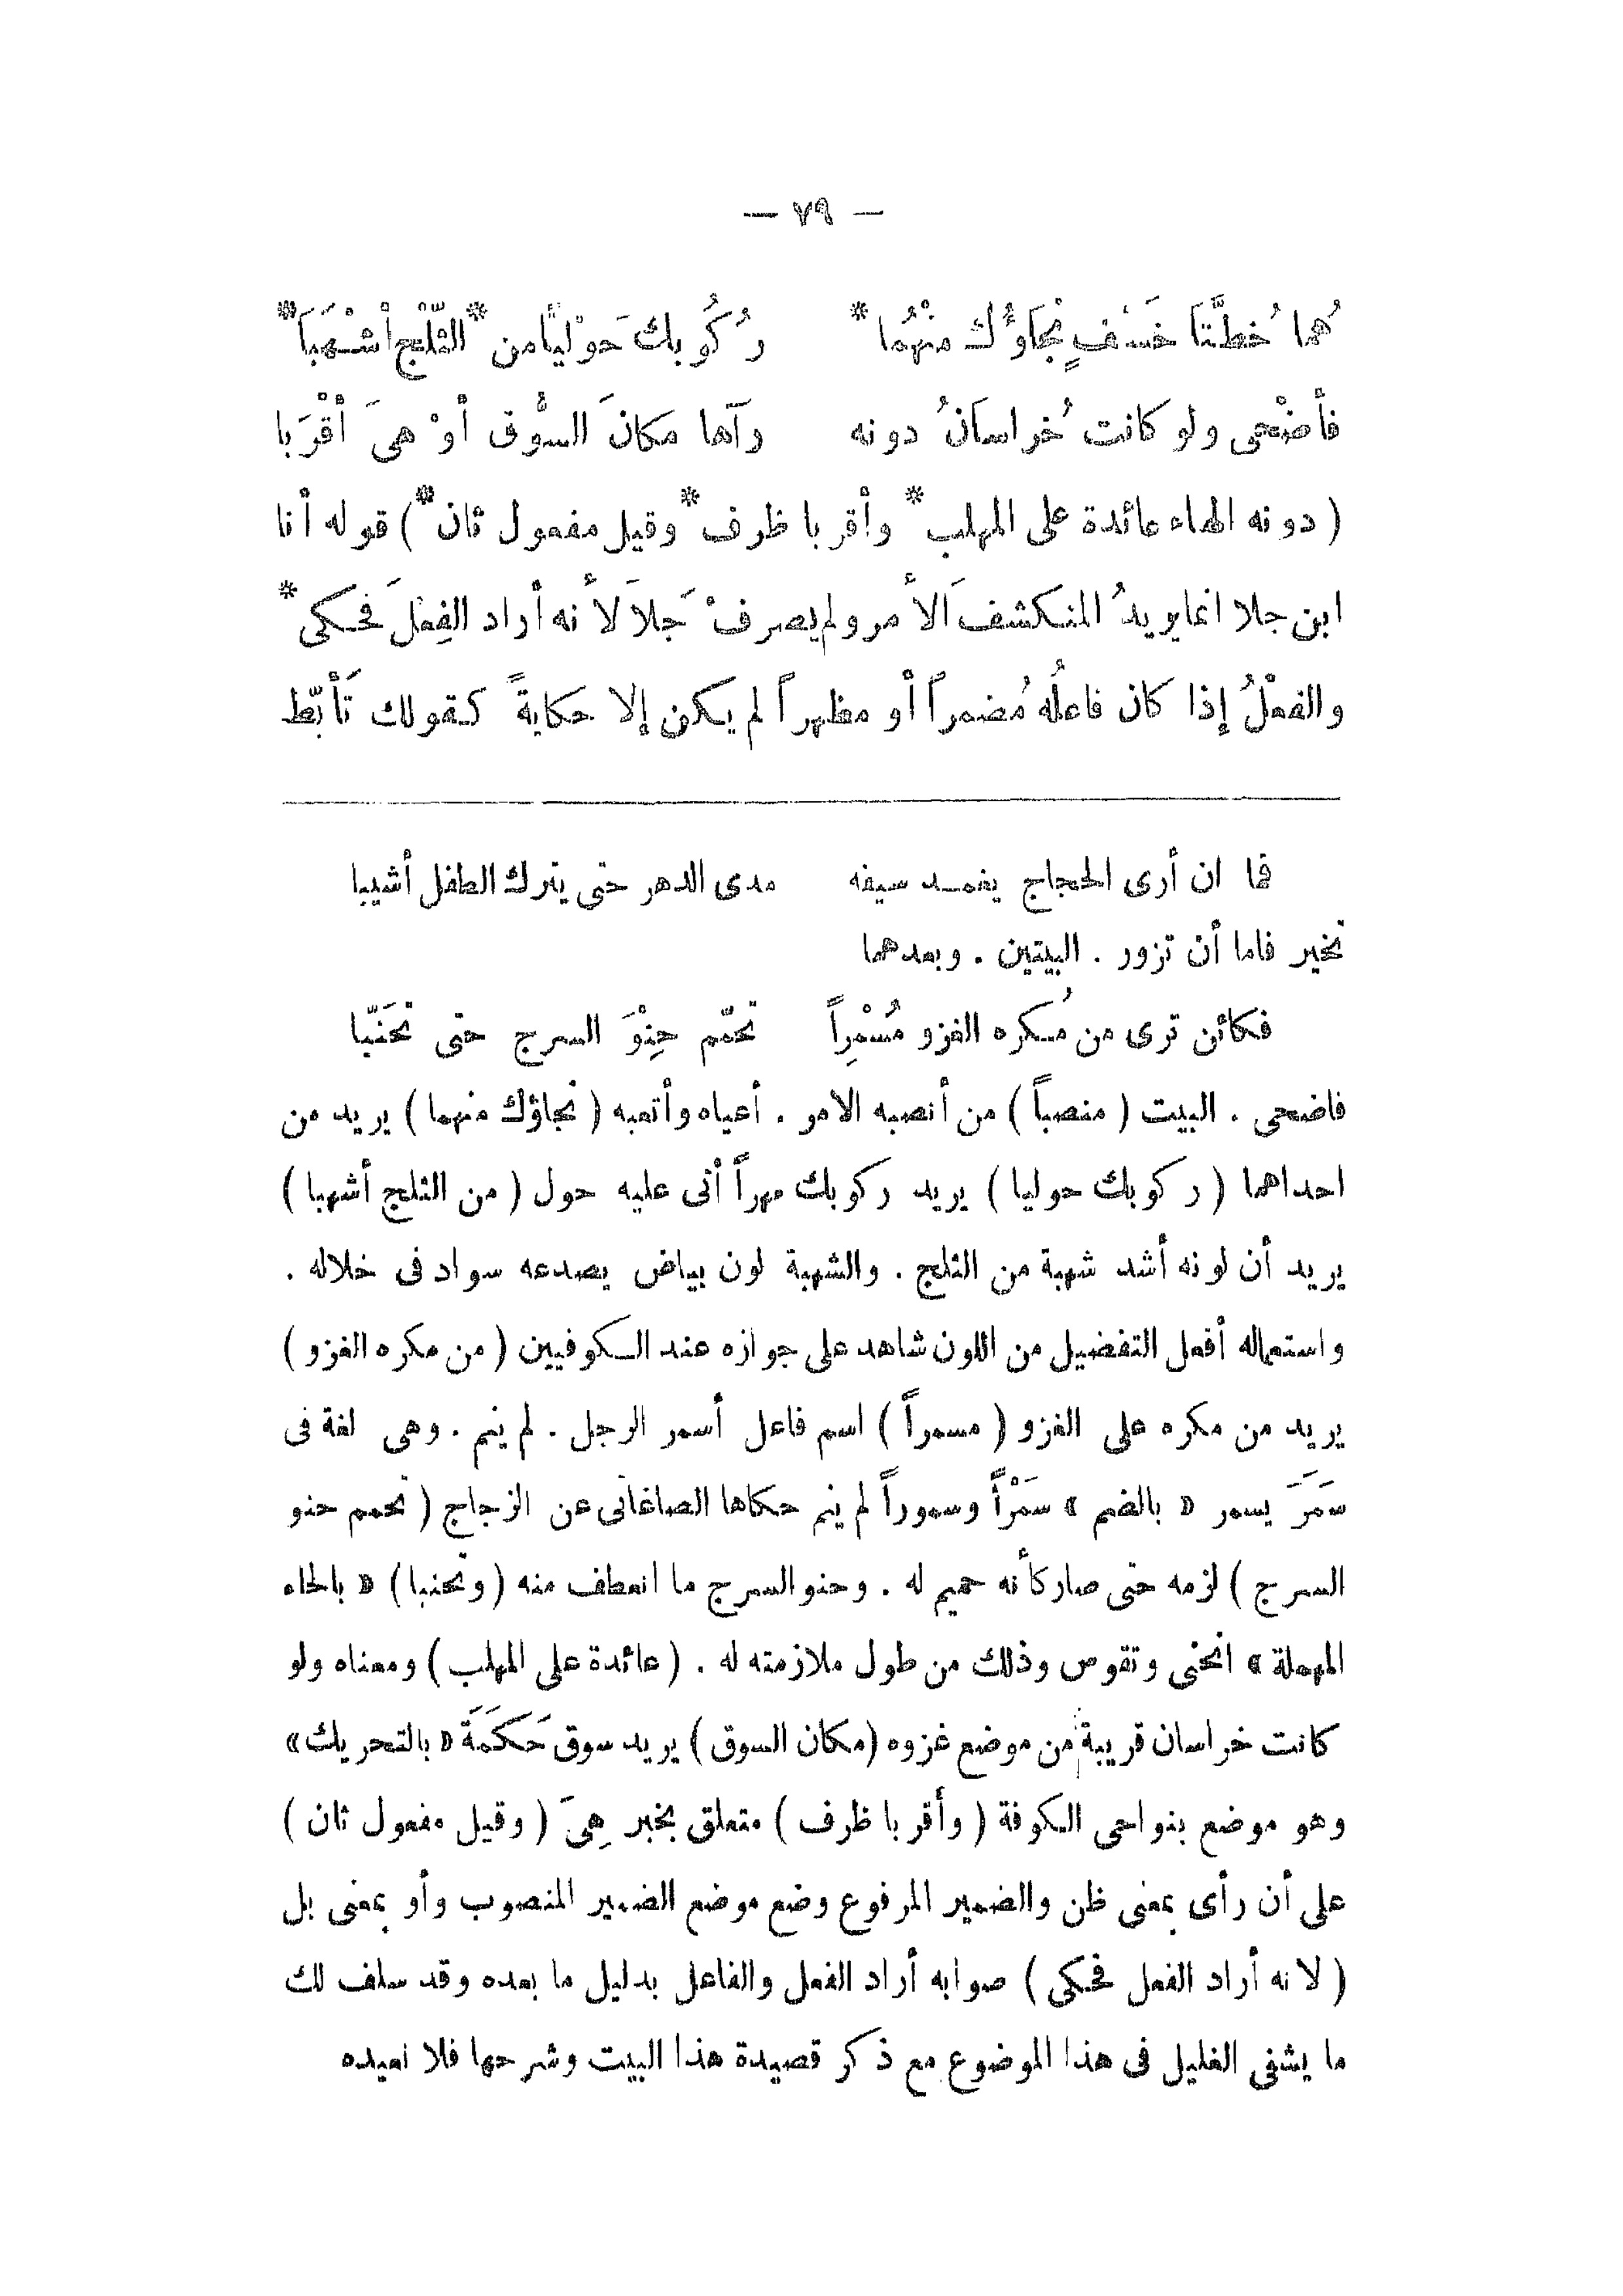 — ٧٩ —
هُما خُطَّتَا خَسْفٍ نجَاؤُكَ منْهُما * رُكُوبكَ حَوْليًّا من * الثّلْجِ أشْهَبَا *
فأضْحى ولو كانت خُراسانُ دونه رآها مكانَ السُّوق أوْ هىَ أقْرَبا
( دونه الهاء عائدة على المهلب * وأقربا ظرف * وقيل مفعول ثان * ) قوله أنا
ابن جلا انما يريدُ المنكشفَ الأمر ولم يصرفْ جَلَا لأنه أراد الفِعْلَ فحكى *
والفعْلُ إذا كان فاعلُه مُضمراً أو مظهراً لم يكن إلا حكايةً كقولك تَأَبّط
فما ان أرى الحجاج يغمد سيفه مدى الدهر حتى يترك الطفل أشيبا
تخير فاما أن تزور . البيتين . وبعدهما
فكائن ترى من مُكره الغزو مُسْمِراً تحمّم حِنْوَ السرج حتى تحَنّبا
فاضحى . البيت ( منصباً ) من أنصبه الامر . أعياه وأتعبه ( نجاؤك منهما ) يريد من
احداهما ( ركوبك حوليا ) يريد ركوبك مهراً أتى عليه حول ( من الثلج أشهبا )
يريد أن لونه أشد شهبة من الثلج . والشهبة لون بياض يصدعه سواد فى خلاله .
واستعماله أفعل التفضيل من اللون شاهد على جوازه عند الكوفيين ( من مكره الغزو )
يريد من مكره على الغزو ( مسمراً ) اسم فاعل أسمر الرجل . لم ينم . وهى لغة فى
سَمَرَ يسمر « بالضم » سَمْرًا وسموراً لم ينم حكاها الصاغانى عن الزجاج ( تحمم حنو
السرج ) لزمه حتى صار كأنه حميم له . وحنو السرج ما انعطف منه ( وتحنبا ) « بالحاء
المهملة » انحنى وتقوس وذلك من طول ملازمته له . ( عائدة على المهلب ) ومعناه ولو
كانت خراسان قريبة من موضع غزوه (مكان السوق ) يريد سوق حَكَمَةَ « بالتحريك »
وهو موضع بنواحى الكوفة ( وأقربا ظرف ) متعلق بخبر هِىَ ( وقيل مفعول ثان )
على أن رأى بمعنى ظن والضمير المرفوع وضع موضع الضمير المنصوب وأو بمعنى بل
( لانه أراد الفعل فحكى ) صوابه أراد الفعل والفاعل بدليل ما بعده وقد سلف لك
ما يشفى الغليل فى هذا الموضوع مع ذكر قصيدة هذا البيت وشرحها فلا نعيده